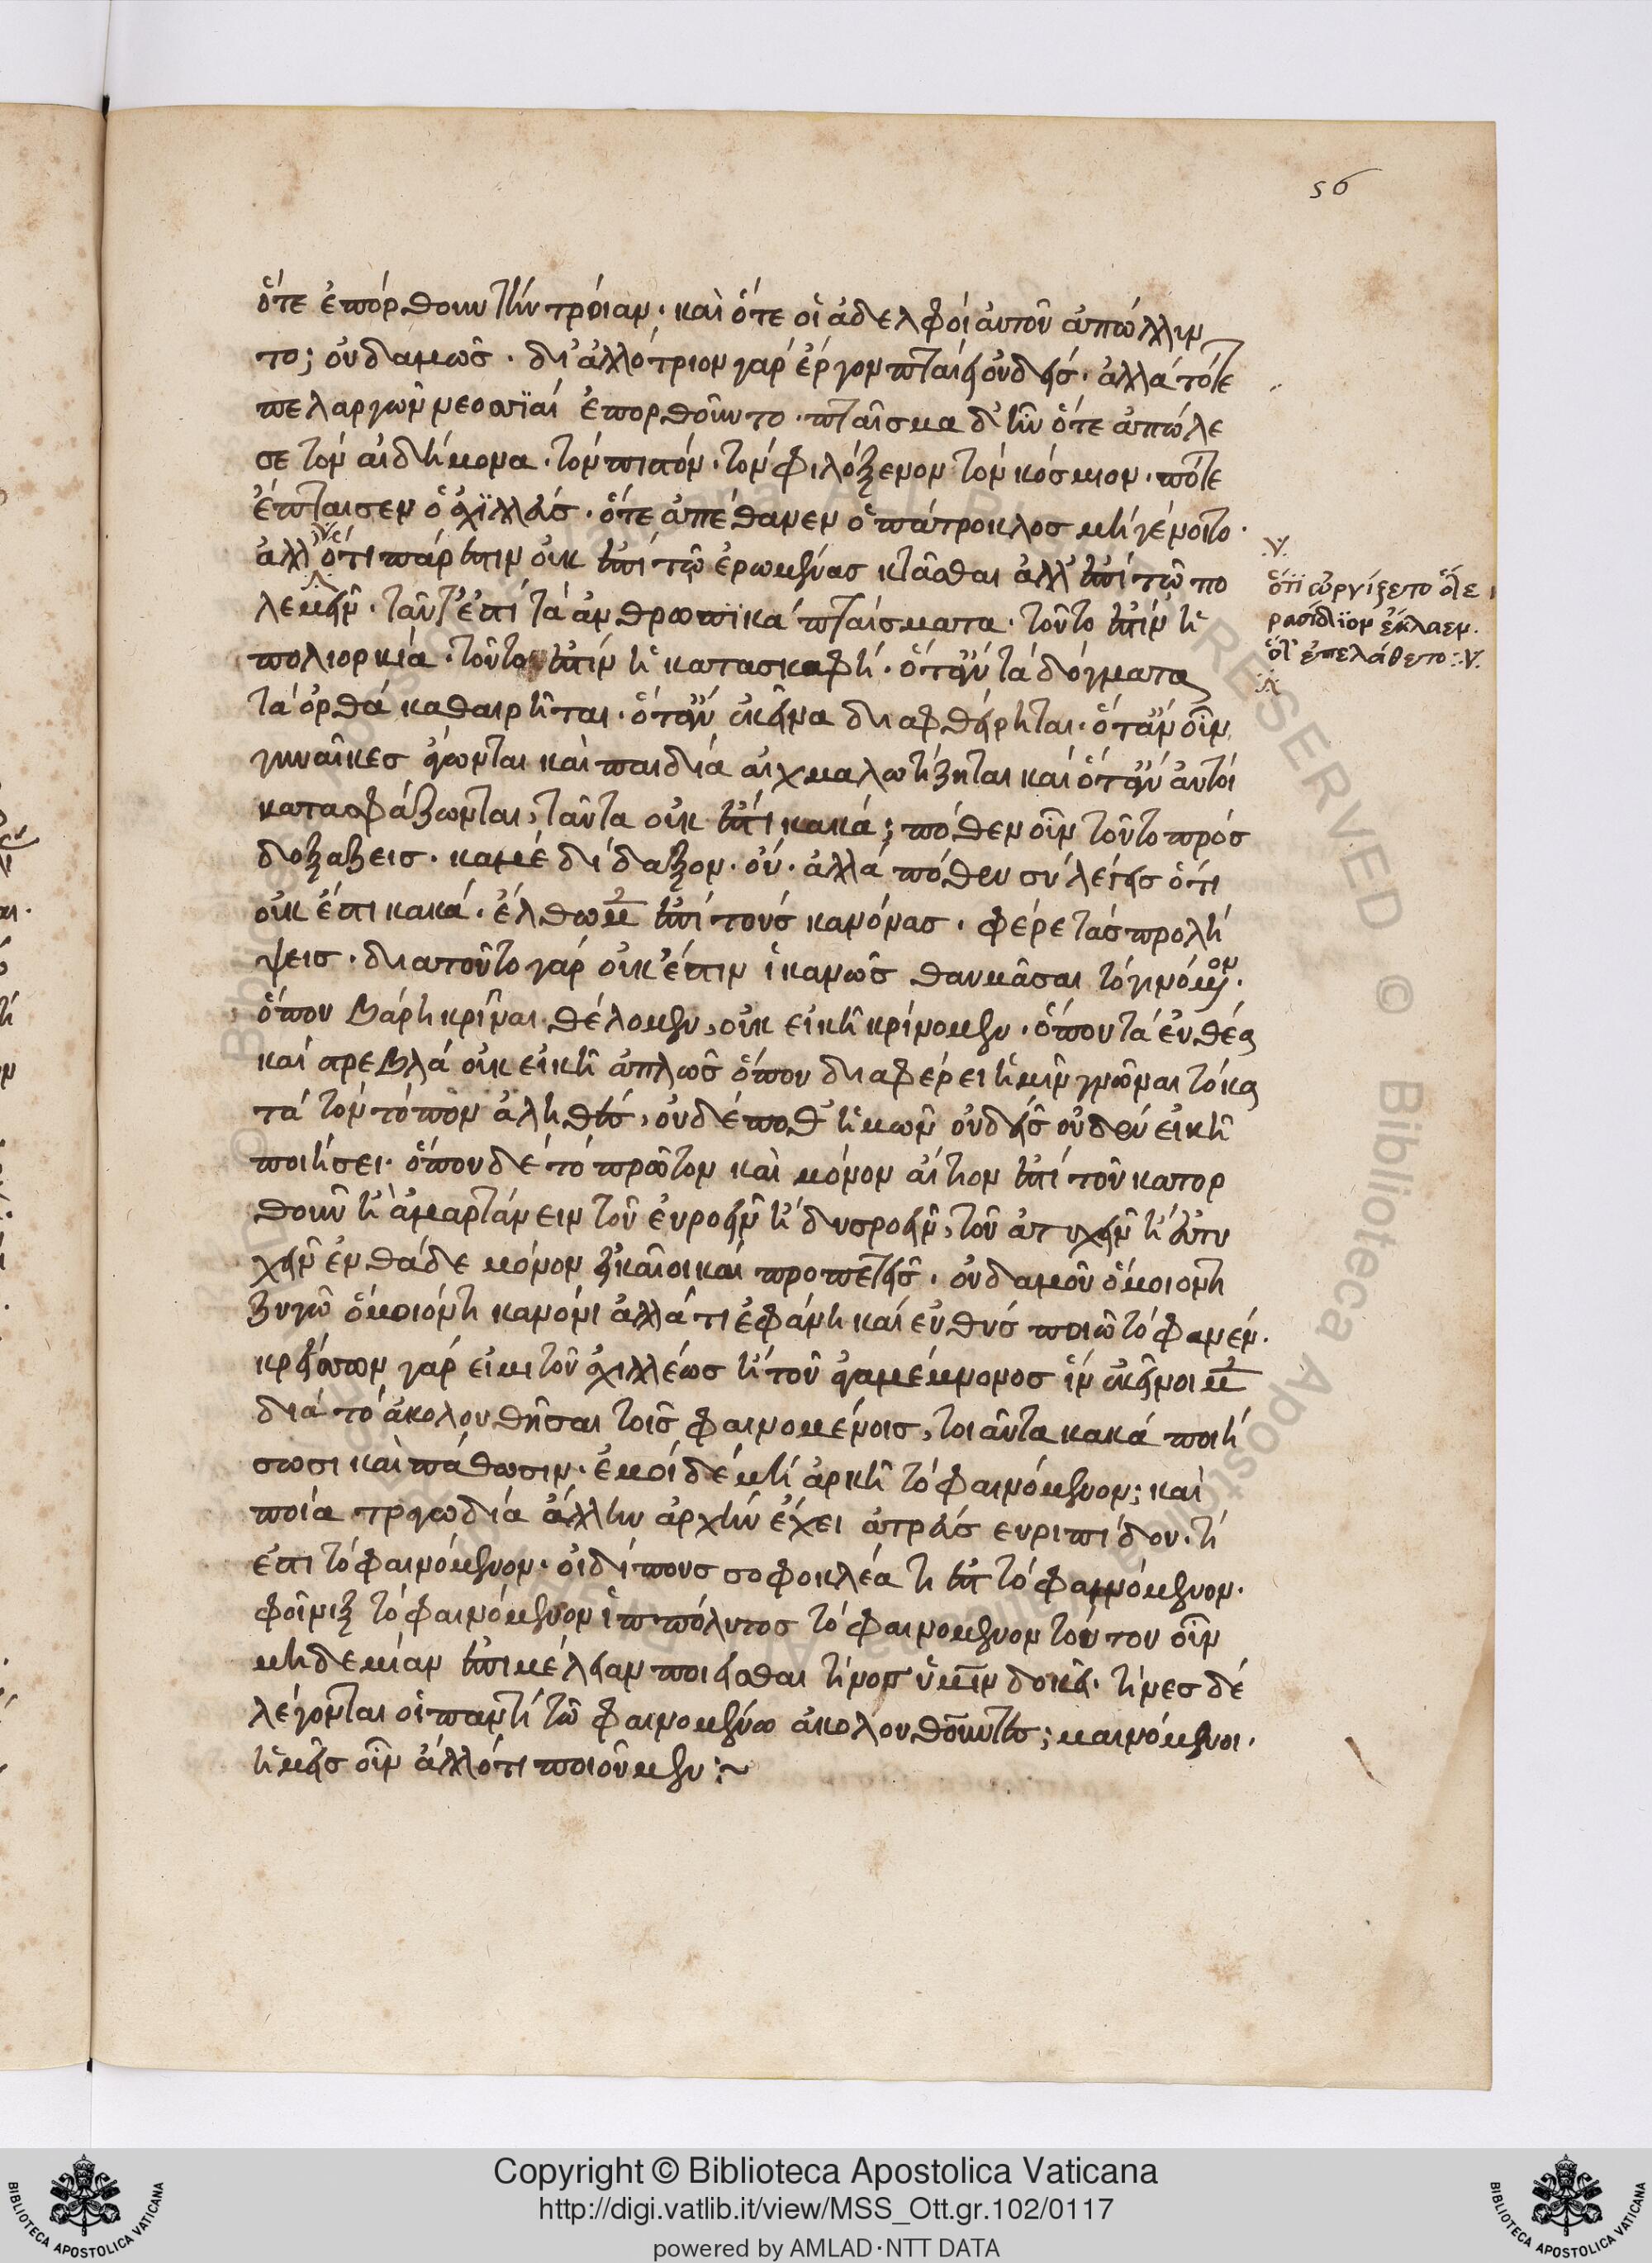 56
ὅτε ἐπόρθουν τὴν τροίαν· καὶ ὅτε οἱ ἀδελφοὶ ἀυτοῦ ἀπώλλυν
το; οὐδαμῶς· δι' ἀλλότριον γὰρ ἔργον πταίει οὐδείς· ἀλλὰ τότε
πελαργῶν νεοσϊαὶ ἐπορθοῦντο· πταῖσμα δ' ἦν ὅτε ἀπώλε
σε τὸν αἰδήμονα· τὸν πιστόν· τὸν φιλόξενον τὸν κόσμιον· πότε
ἔπταισεν ὁ ἀχϊλλεύς· ὅτε ἀπέθανεν ὁ πάτροκλος μὴ γένοιτο·
ἀλλ' ὅτι πάρεστιν οὐκ ἐπὶ τῷ ἐρωμένας κτᾶσθαι ἀλλ' ἐπὶ τῷ πο
λεμεῖν· ταῦτ' ἔστι τὰ ἀνθρωπϊκὰ πταίσματα· τοῦτο ἐστὶν ἡ
πολιορκία· τοῦτο ἐστὶν ἡ κατασκαφή· ὅταν τὰ δόγματα
τὰ ὀρθὰ καθαιρῆται· ὅταν ἐκεῖνα διαφθείρηται· ὅταν οὖν
γυναῖκες ἄγωνται καὶ παιδιὰ αἰχμαλωτίζηται καὶ ὅταν ἀυτοὶ
κατασφάζωνται, ταῦτα οὐκ ἔστι κακά; πόθεν οὖν τοῦτο πρός
δοξαζεις· καμὲ δίδαξον· οὔ· ἀλλὰ πόθεν σὺ λέγεις ὅτι
οὐκ ἔστι κακά· ἔλθωμεν ἐπὶ τοὺς κανόνας· φέρε τὰς προλή
ψεις· διατοῦτο γὰρ οὐκ ἔστιν ἱκανῶς θαυμᾶσαι τὸ γινόμενον·
ὅπου βάρη κρῖναι θέλομεν, οὐκ εἰκῆ κρίνομεν· ὅπου τὰ εὐθέα
καὶ στρεβλὰ οὐκ εἰκῆ ἁπλῶς ὅπου διαφέρει ἡμῖν γνῶναι τὸ κα
τὰ τὸν τόπον ἀληθὲς, οὐδέποθ' ἡμῶν οὐδεὶς οὐδὲν εἰκῆ
ποιήσει· ὅπου δὲ τὸ πρῶτον καὶ μόνον αἴτιον ἐστὶ τοῦ κατορ
θοῦν ἢ ἁμαρτάνειν τοῦ ἐυροεῖν ἢ δυσροεῖν, τοῦ ἀτυχεῖν ἢ εὐτυ
χεῖν ἐνθάδε μόνον εἰκαῖοι καὶ προπετεῖς· οὐδαμοῦ ὅμοιόν τι
ζυγῷ ὅμοιόν τι κανόνι ἀλλά τι ἐφάνη καὶ εὐθὺς ποιῶ τὸ φανέν·
κρείσσων γὰρ εἰμι τοῦ ἀχιλλέως ἢ τοῦ ἀγαμέμνονος ἵν' ἐκεῖνοι μὲν
διὰ τὸ ἀκολουθῆσαι τοῖς φαινομένοις, τοιαῦτα κακὰ ποιή
σωσι καὶ πάθωσιν· ἐμοὶ δὲ μὴ ἀρκῇ τὸ φαινόμενον; καὶ
ποία τραγωδία ἄλλην ἀρχὴν ἔχει ἀτρεὺς ευριπίδου· τί
ἐστι τὸ φαινόμενον· οἰδίπους σοφοκλέα τι ἐστὶ τὸ φαινόμενον·
φοῖνιξ τὸ φαινόμενον ἱππόλυτος τὸ φαινομενον τούτου οὖν
μηδεμίαν ἐπιμέλειαν ποιεῖσθαι τίνος ὑμῖν δοκεῖ· τίνες δὲ
λέγονται οἱ παντὶ τῷ φαινομένω ἀκολουθοῦντες; μαινόμενοι·
ἡμεῖς οὖν ἄλλό τι ποιοῦμεν:~
ὅτι ὠργίζετο ὅτε
ρασίδϊον ἔκλαεν·
ὅτι ἐπελάθετο
Copyright © Biblioteca Apostolica Vaticana
http://digi.vatlib.it/view/MSS_Ott.gr.102/0117
powered by AMLAD·NTT DATA
BIBLIOTECA APOSTOLICA VATICANA
BIBLIOTECA APOSTOLICA VATICANA